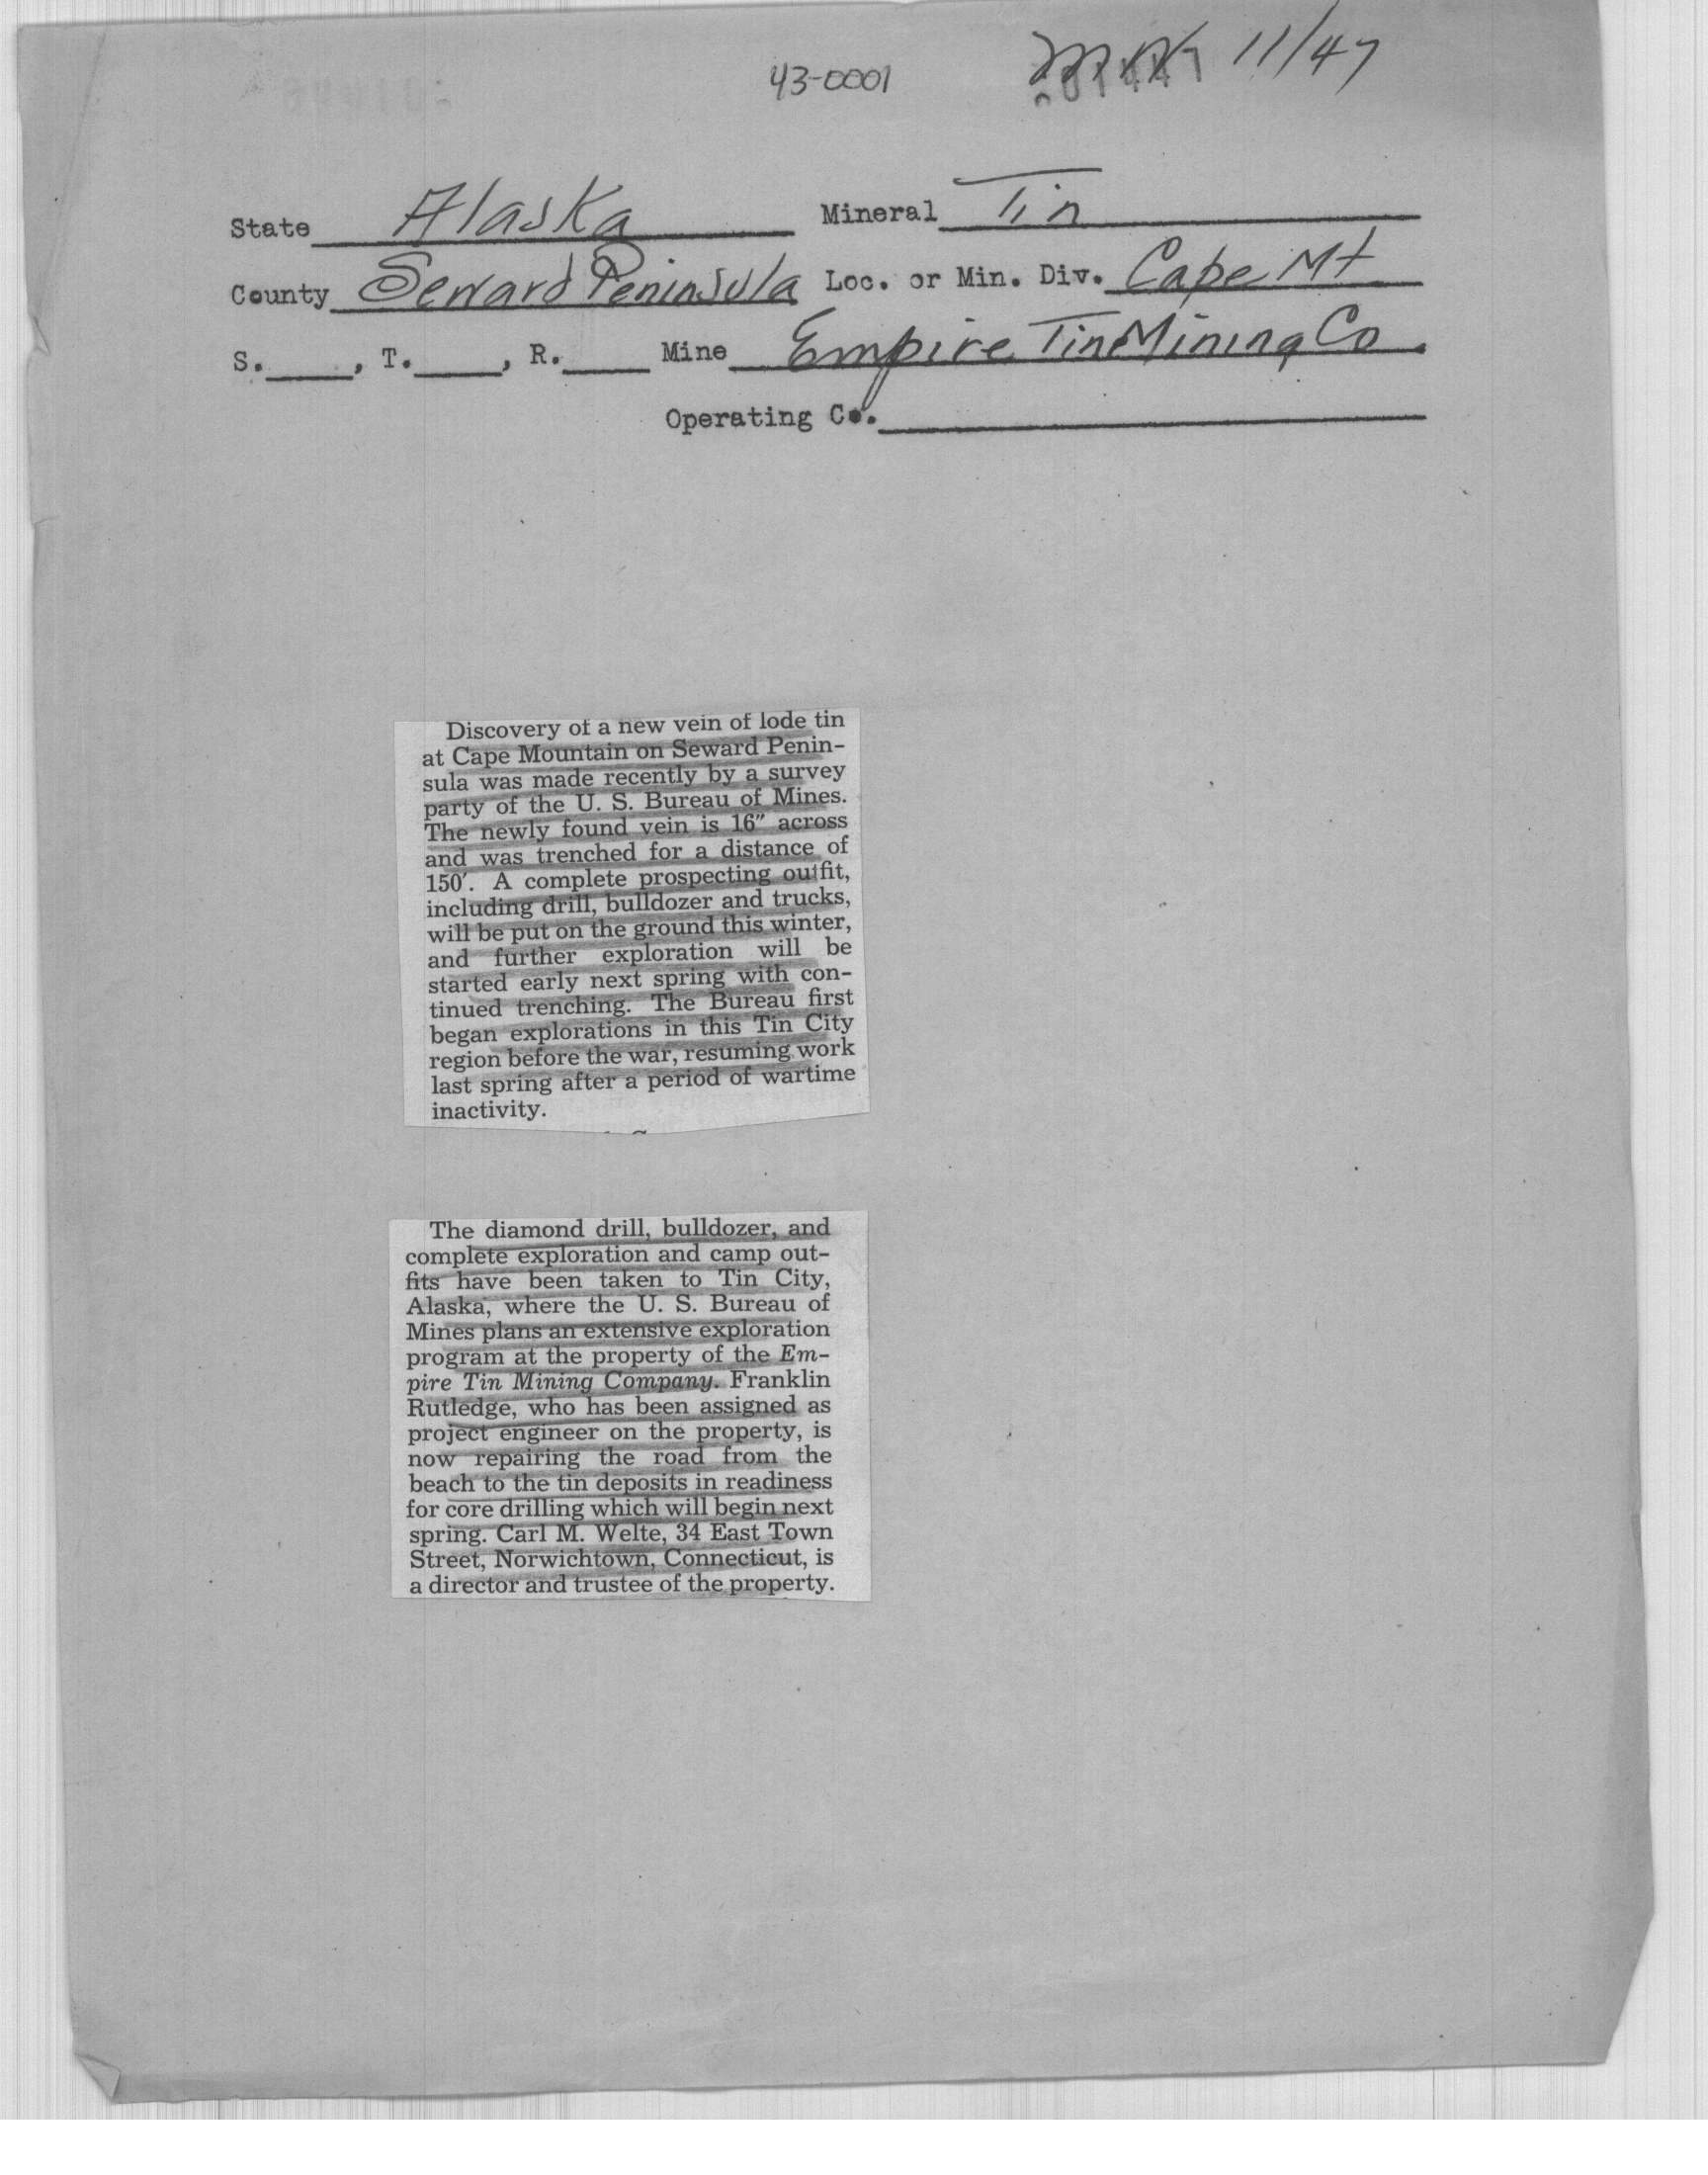 43-0001
11/47
State Alaska Mineral Tin
County Seward Peninsula Loc. or Min. Div. Cape Mt
S. , T. , R. Mine Empire Tin Mining Co.
Operating Co.
Discovery of a new vein of lode tin
at Cape Mountain on Seward Penin-
sula was made recently by a survey
party of the U. S. Bureau of Mines.
The newly found vein is 16″ across
and was trenched for a distance of
150′. A complete prospecting outfit,
including drill, bulldozer and trucks,
will be put on the ground this winter,
and further exploration will be
started early next spring with con-
tinued trenching. The Bureau first
began explorations in this Tin City
region before the war, resuming work
last spring after a period of wartime
inactivity.
The diamond drill, bulldozer, and
complete exploration and camp out-
fits have been taken to Tin City,
Alaska, where the U. S. Bureau of
Mines plans an extensive exploration
program at the property of the Em-
pire Tin Mining Company. Franklin
Rutledge, who has been assigned as
project engineer on the property, is
now repairing the road from the
beach to the tin deposits in readiness
for core drilling which will begin next
spring. Carl M. Welte, 34 East Town
Street, Norwichtown, Connecticut, is
a director and trustee of the property.